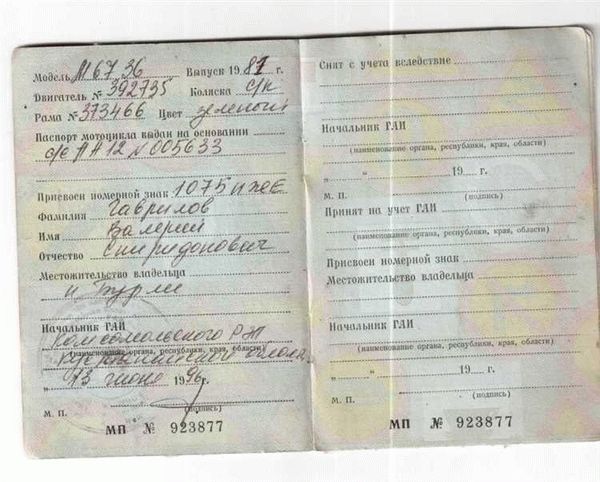 Модель М67 36 Выпуск 1981 г.
Двигатель № 392735 Коляска с/к
Рама № 373466 Цвет зеленый
Паспорт мотоцикла выдан на основании
с/с ПА 12 № 005633
Присвоен номерной знак 1075
Фамилия Гаврилов
Имя Валерий
Отчество Спиридонович
Местожительство владельца
Начальник ГАИ
Комсомольского
(наименование органа, республики, края, области)
13 июня 1996 г.
М. П. (подпись)
МП № 923877
Снят с учета вследствие
Начальник ГАИ
(наименование органа, республики, края, области)
" " 19 г.
М. П. (подпись)
Принят на учет ГАИ
(наименование органа, республики, края, области)
Присвоен номерной знак
Местожительство владельца
Начальник ГАИ
(наименование органа, республики, края, области)
" " 19 г.
М. П. (подпись)
МП № 923877